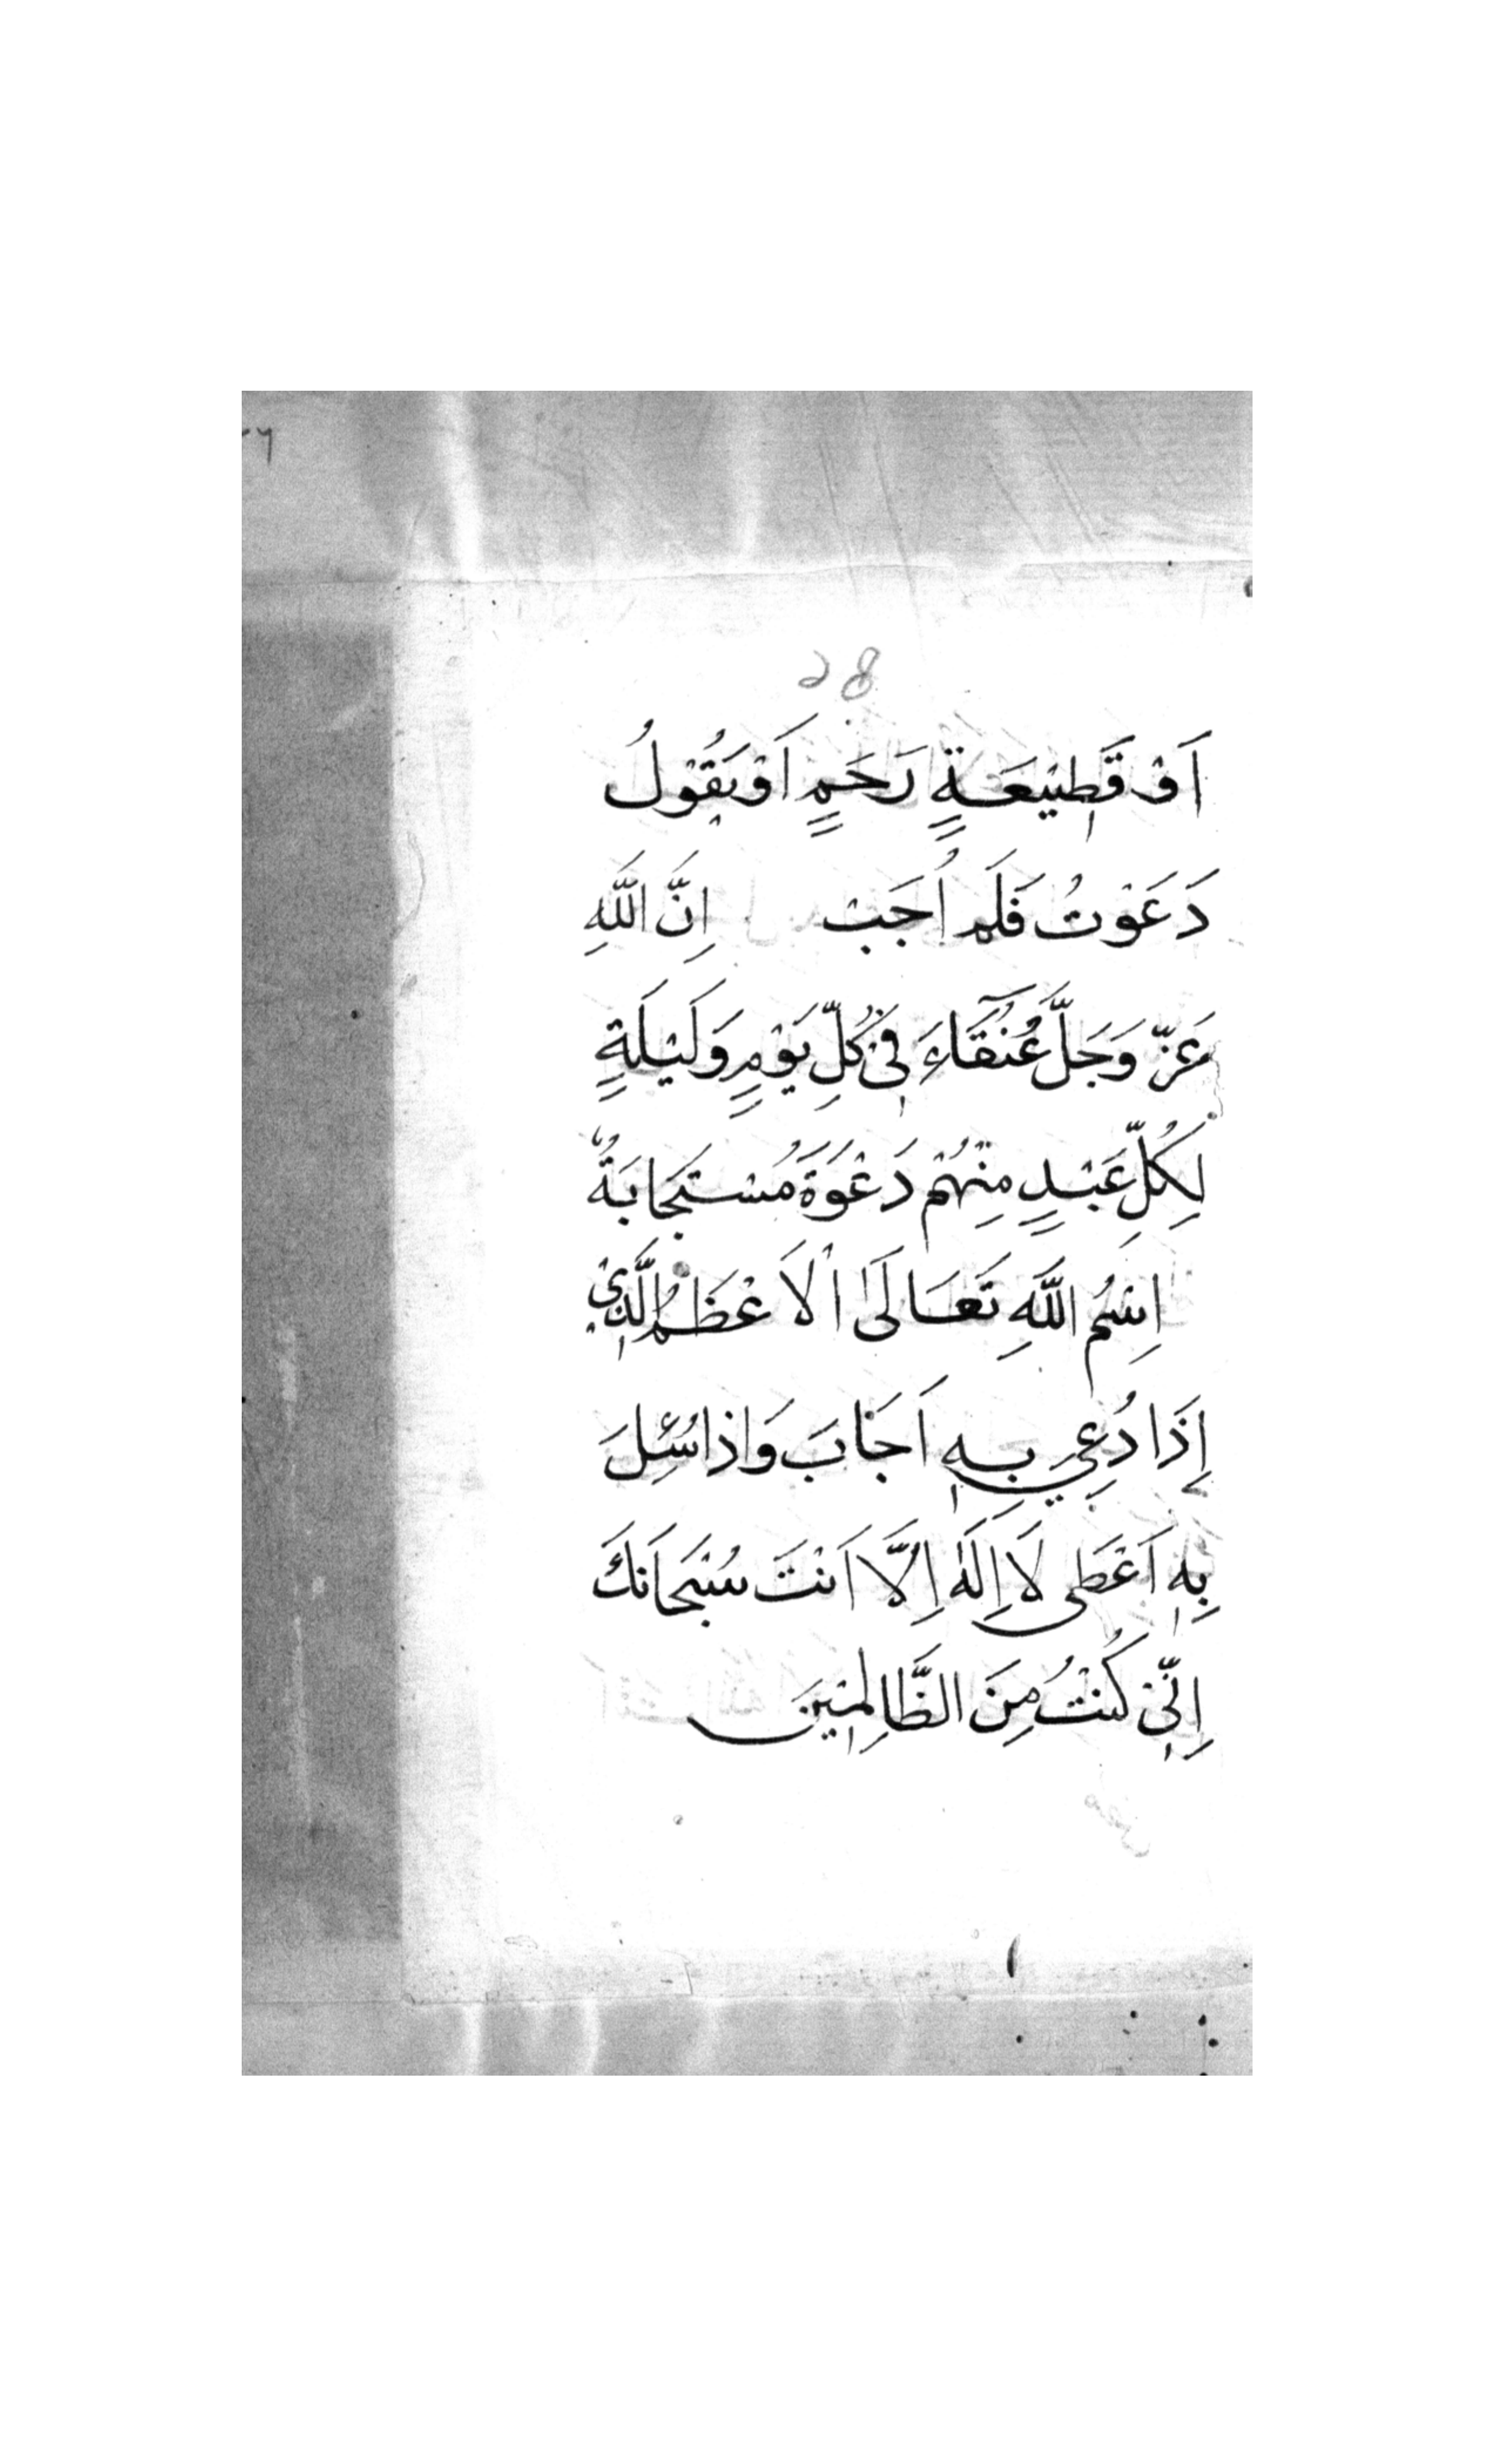 اَوْ قَطِيْعَةٍ رَحَمٍ اَوْ يَقُوْلُ
دَعَوْتُ فَلَمْ اُجَبْ اِنَّ اللَّهِ
عَزَّ وَجَلَّ عُتَقَآءَ فِيْ كُلِّ يَوْمٍ وَلَيْلَةٍ
لِكُلِّ عَبْدٍ مِنْهُمْ دَعْوَةٌ مُسْتَجَابَةٌ
اِسْمُ اللَّهِ تَعَالَى الْاَعْظَمُ الَّذِيْ
اِذَا دُعِيَ بِهِ اَجَابَ وَاِذَا سُئِلَ
بِهِ اَعْطَى لَا اِلَهَ اِلَّا اَنْتَ سُبْحَانَكَ
اِنِّيْ كُنْتُ مِنَ الظَّالِمِيْنَ